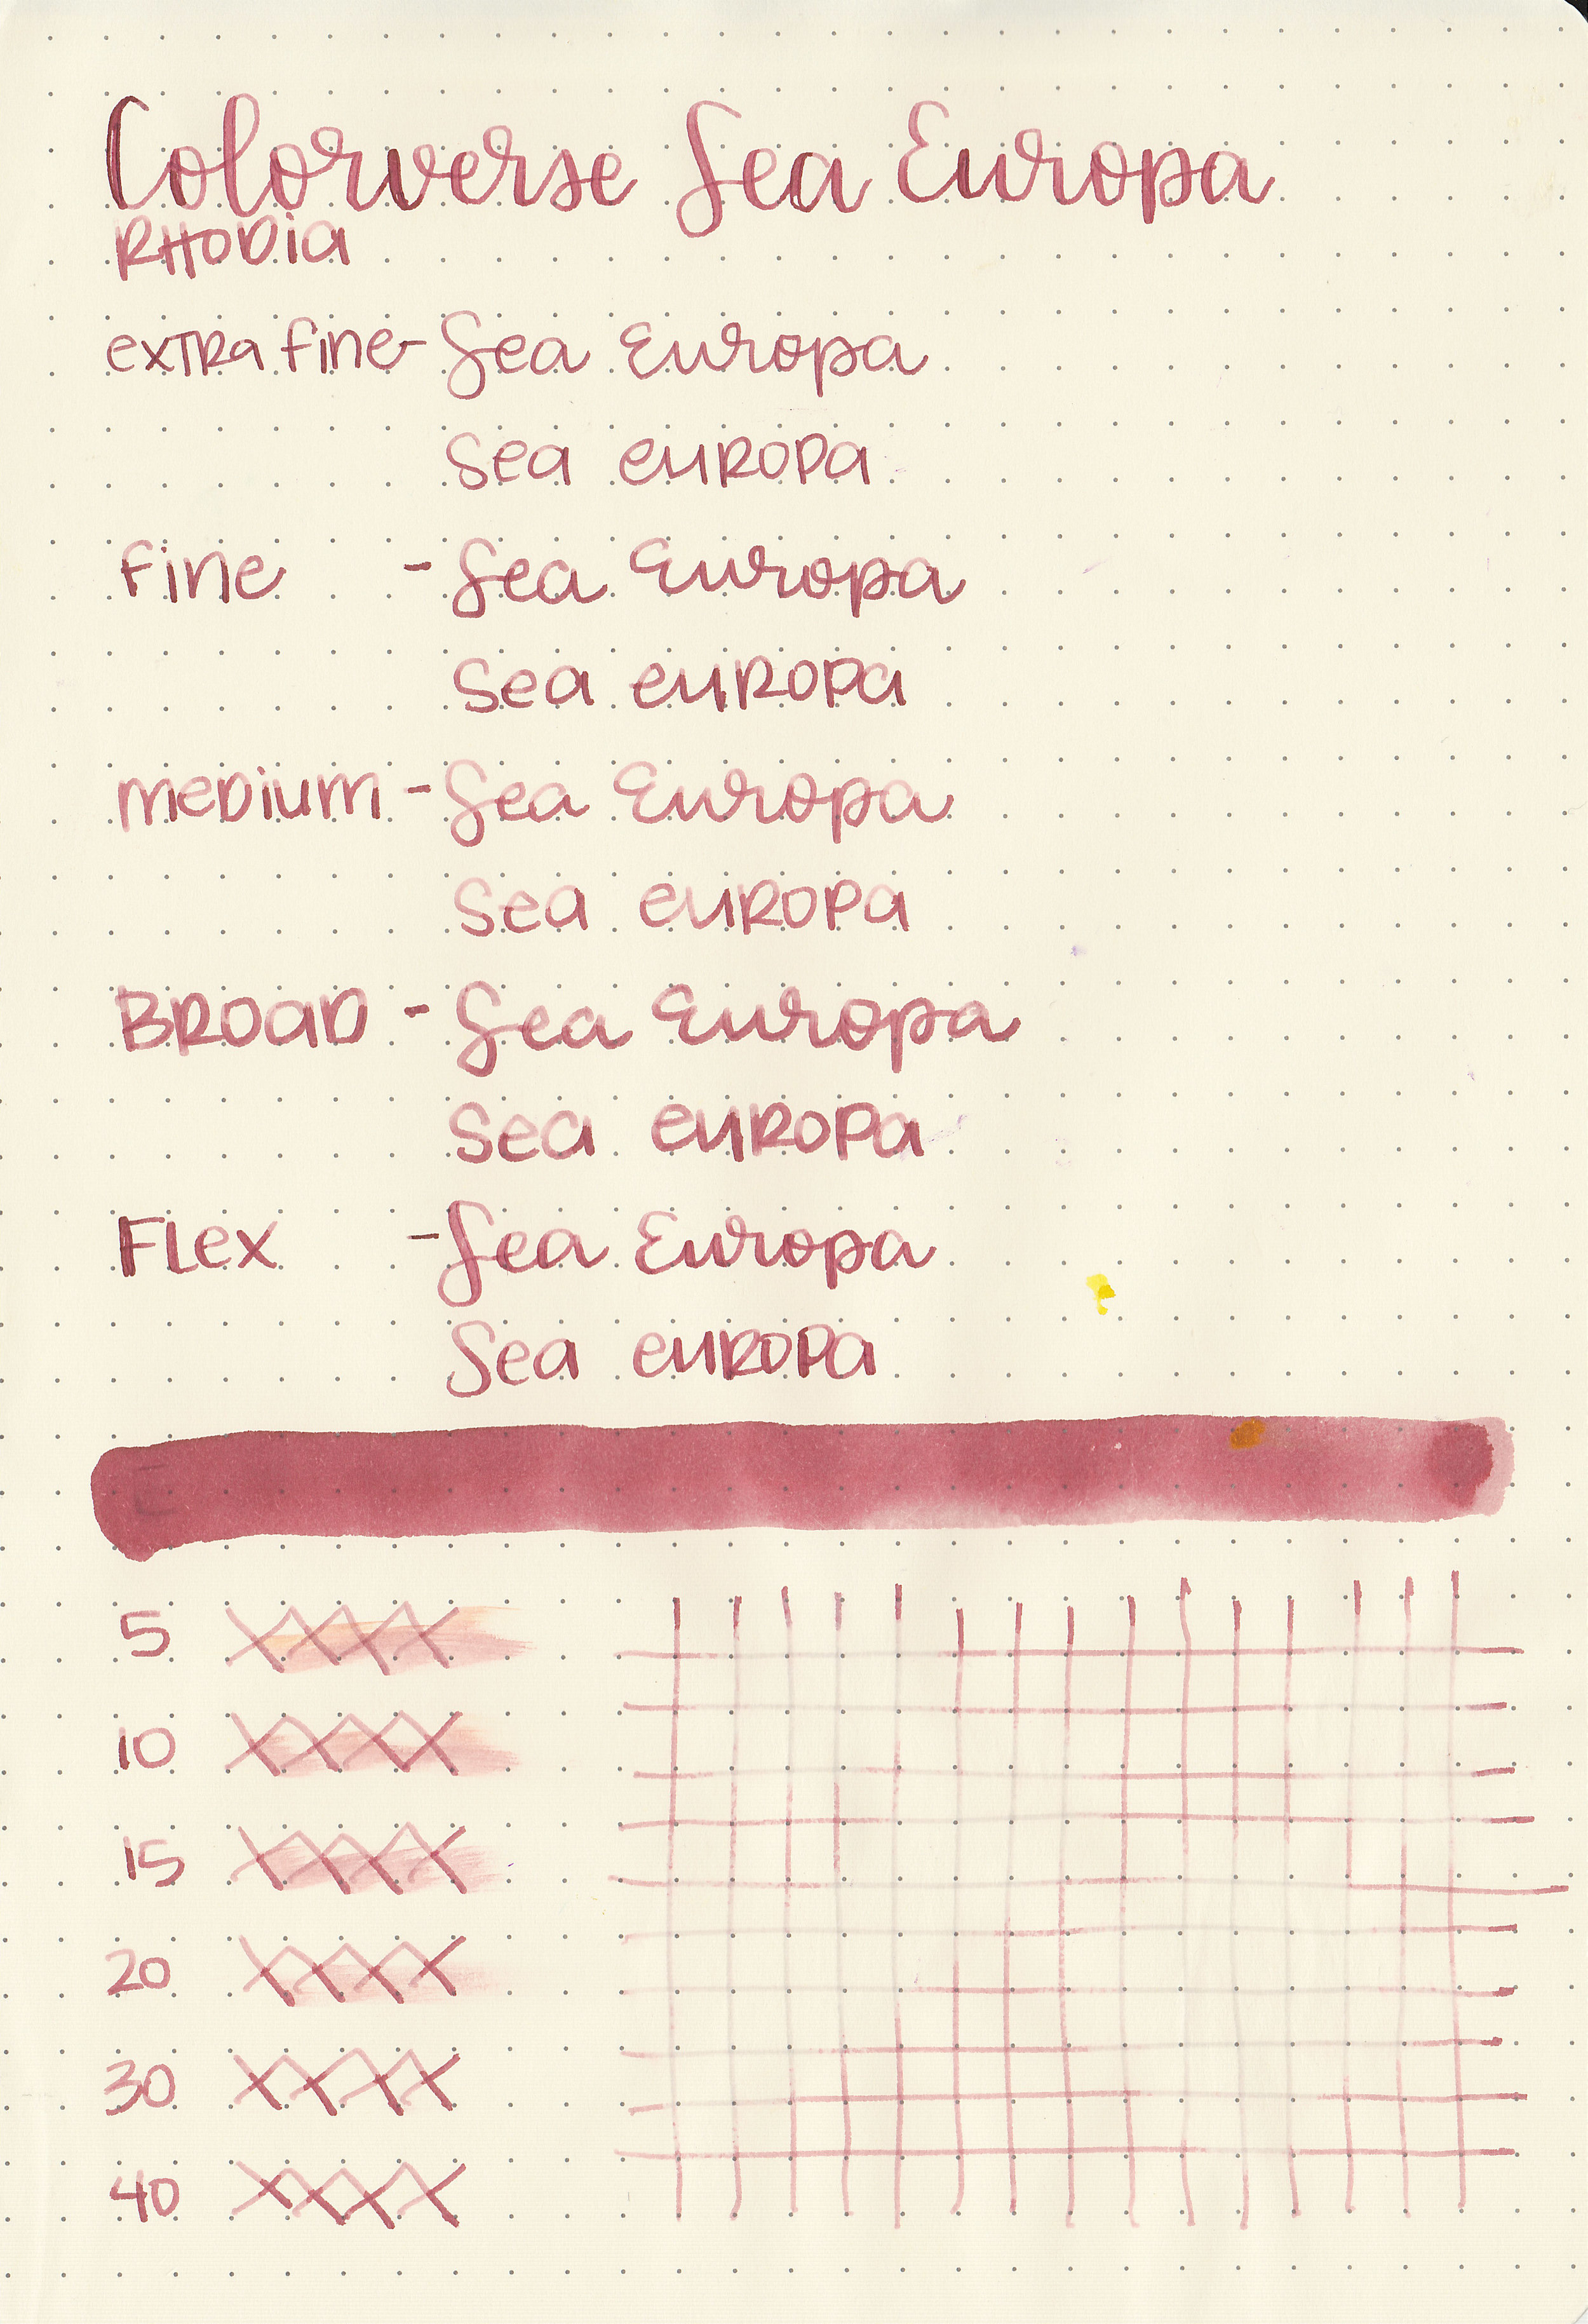 Colorverse Sea Europa
RHODia
exTRa fine - Sea Europa
Sea euROPa
fine - Sea Europa
Sea euROPa
meDium - Sea Europa
Sea euROPa
BROaD - Sea Europa
Sea euROPa
FLex - Sea Europa
Sea euROPa
5 XXXX
10 XXXX
15 XXXX
20 XXXX
30 XXXX
40 XXXX